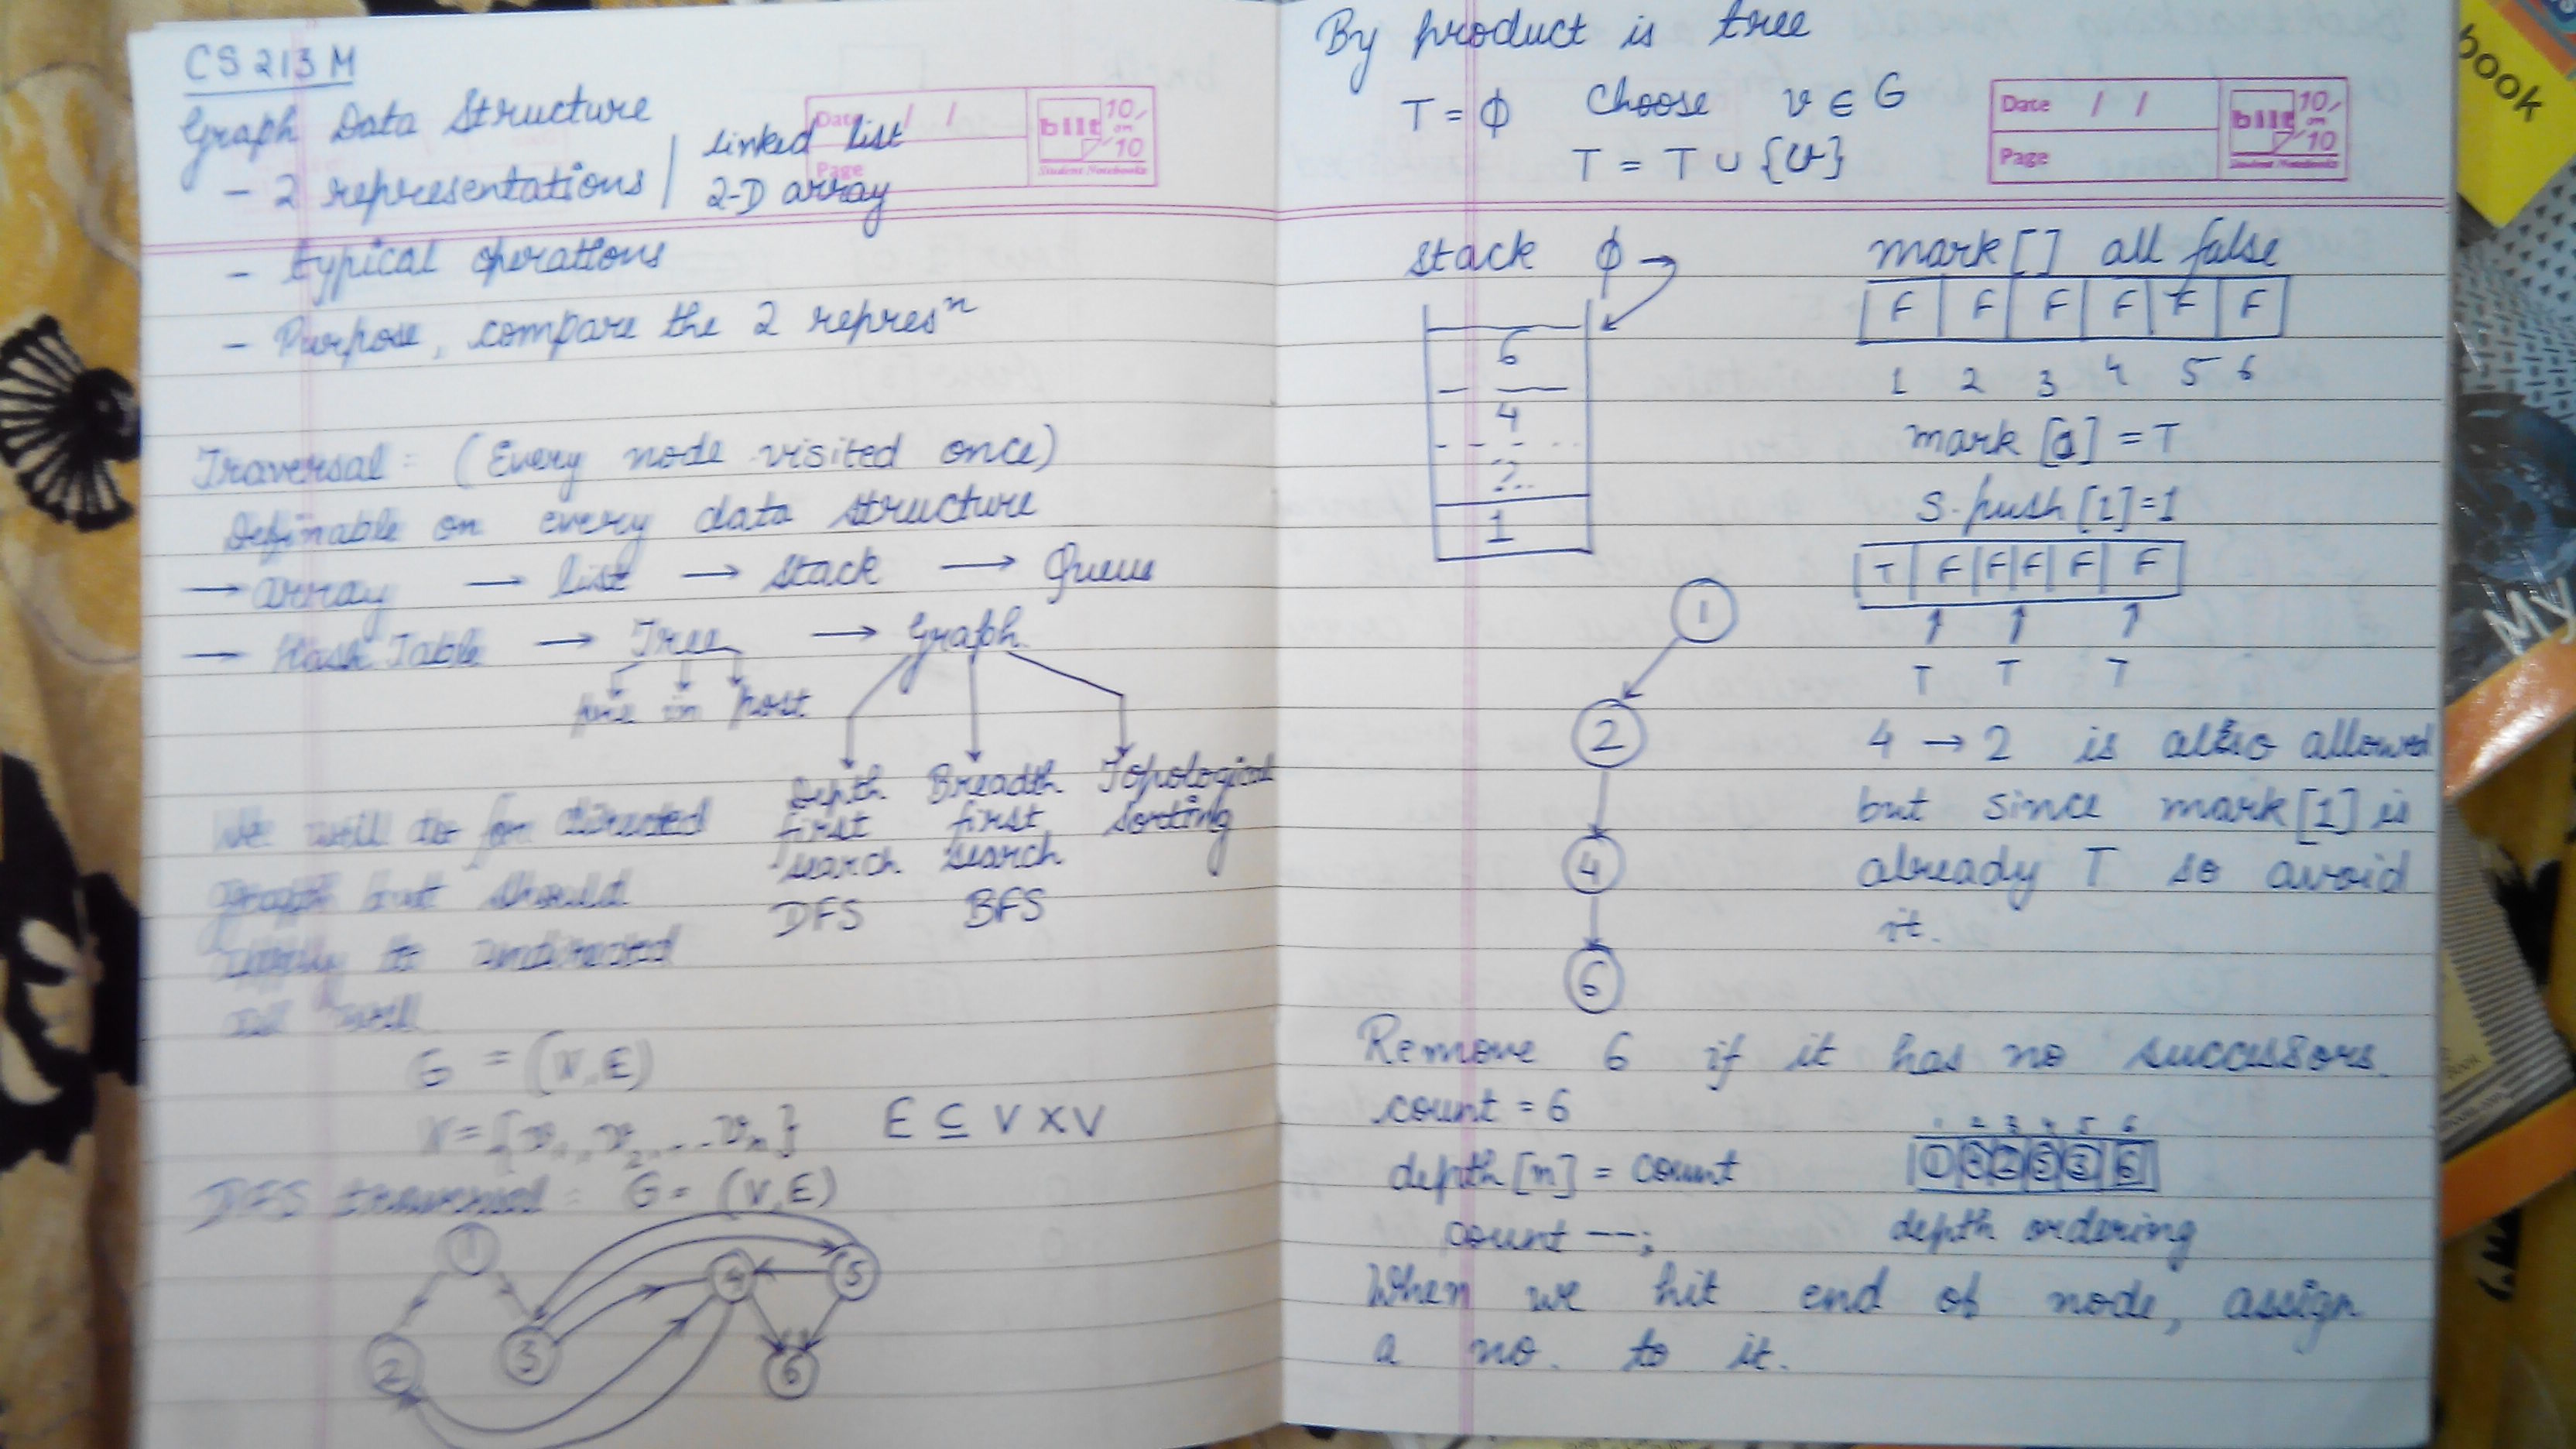 CS 213 M
Graph Data Structure
- 2 representations | linked list
2-D array
- typical operations
- Purpose, compare the 2 represⁿ
Date / /
Page
bilt 10 on 10
Student Notebooks
Traversal = (Every node visited once)
Definable on every data structure
→ array → list → stack → Queue
→ Hash Table → Tree → Graph
pre in post
Depth Breadth Topological
first first sorting
search search
DFS BFS
We will do for directed
graph but should
apply to undirected
as well
G = (V, E)
V = {v₁, v₂, ... vₙ} E ⊆ V X V
DFS traversal = G = (V, E)
1
2 3 4 5
6
By product is tree
T = ϕ Choose v ∈ G
T = T ∪ {v}
Date / /
Page
bilt 10 on 10
Student Notebooks
stack ϕ →
6
4
2
1
mark [ ] all false
F F F F F F
1 2 3 4 5 6
mark [1] = T
S. push [1] = 1
T F F F F F
↑ ↑ ↑
T T T
1
2
4
6
4 → 2 is also allowed
but since mark [1] is
already T so avoid
it.
Remove 6 if it has no successors.
count = 6
depth [n] = count
count --;
1 2 3 4 5 6
depth ordering
When we hit end of node, assign
a no. to it.
book